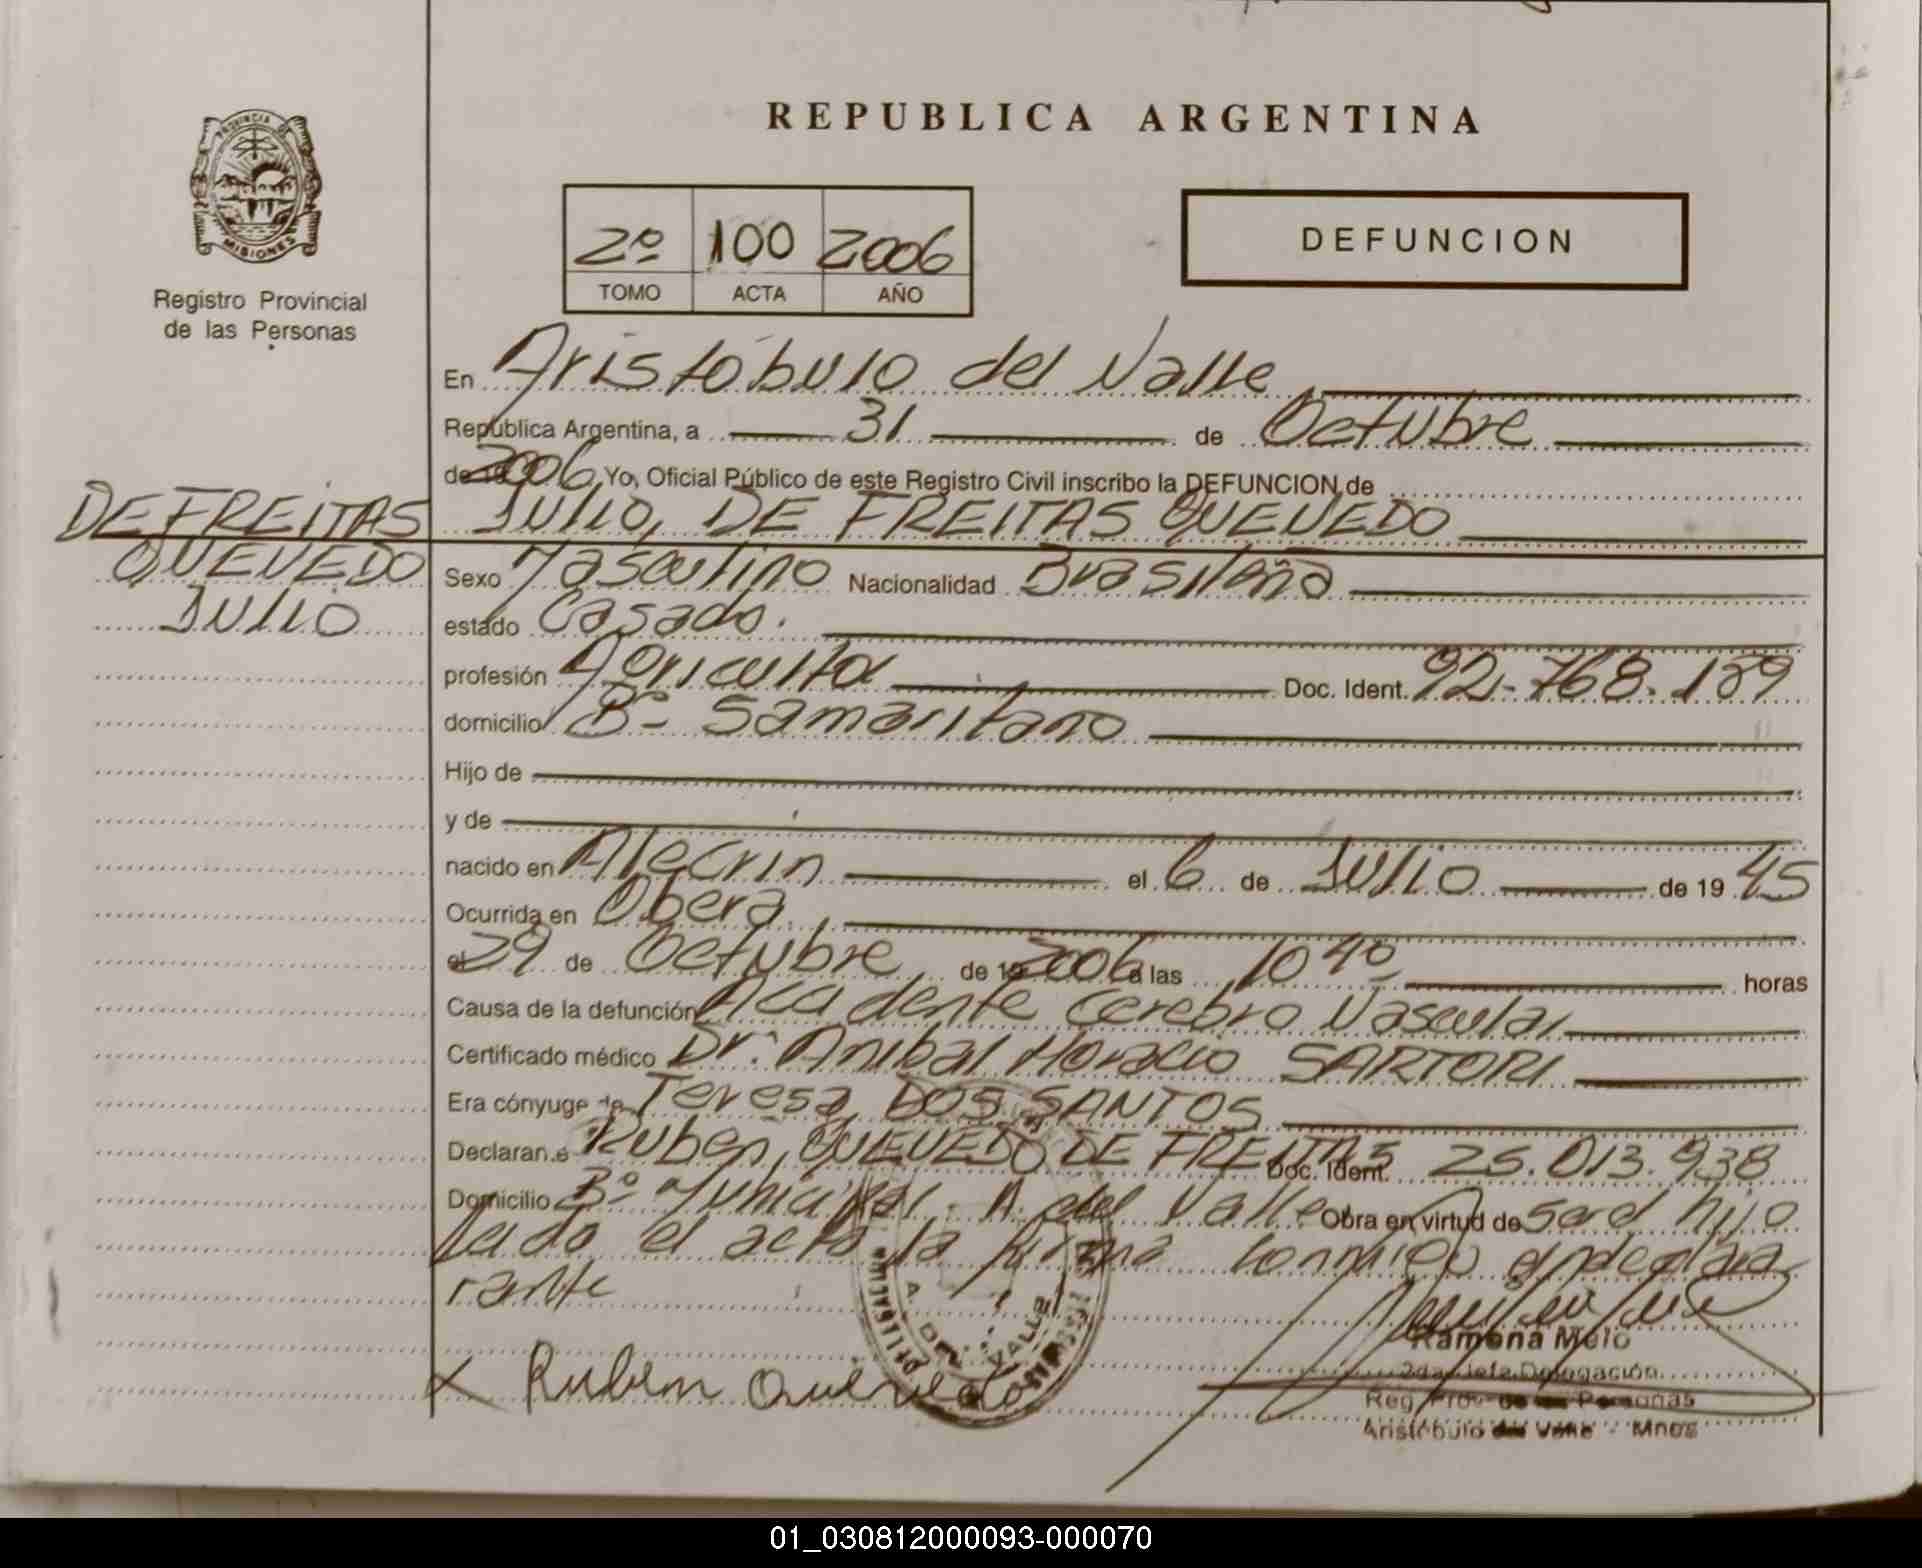 REPUBLICA ARGENTINA
PROVINCIA DE
MISIONES
Registro Provincial
de las Personas
2º 100 2006
TOMO ACTA AÑO
DEFUNCION
En Aristóbulo del Valle
República Argentina, a 31 de Octubre
de 2006 Yo, Oficial Público de este Registro Civil inscribo la DEFUNCION de
JULIO, DE FREITAS QUEVEDO
DE FREITAS
QUEVEDO
JULIO
Sexo Masculino Nacionalidad Brasileña
estado Casado.
profesión Doc. Ident. 92.768.189
domicilio Bº Samaritano
Hijo de
y de
nacido en Alecrin el 6 de Julio de 1945
Ocurrida en Obera
el 29 de Octubre de 2006 a las 10 40 horas
Causa de la defunción Accidente Cerebro Vascular
Certificado médico Dr. Anibal Horacio SARTORI
Era cónyuge de Teresa DOS SANTOS
Declarante Ruben, QUEVEDO DE FREITAS Doc. Ident. 25.013.938
Domicilio Bº Municipal - A del Valle Obra en virtud de ser el hijo
Leido el acta la firma conmigo el decla
rante
A. DEL VALLE
X Ruben Quevedo
Ramona Melo
2da Jefa Delegación
Reg. Prov. de las Personas
Aristóbulo del Valle - Mnes
01_030812000093-000070